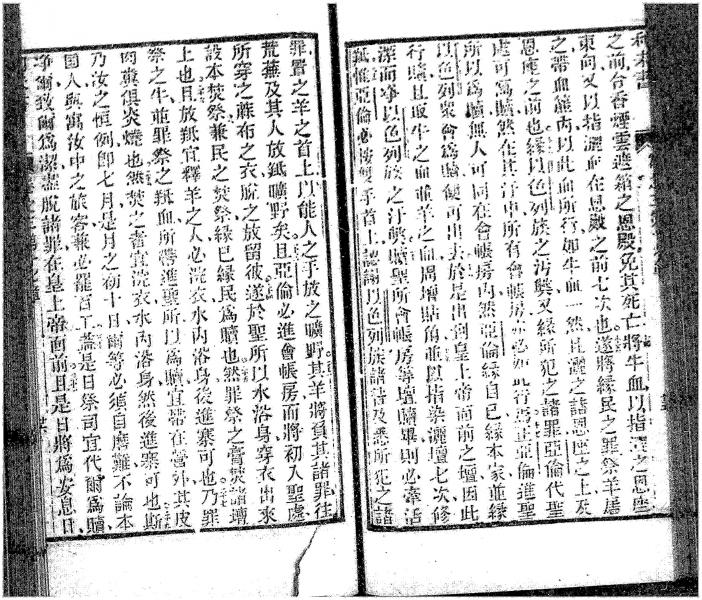 利未書
之前台香煙雲遮箱之恩殿免其死亡將牛血以指洒之恩座
東向又以指灑血在恩殿之前七次也遂將緣民之罪祭羊屠
之帶血簾內以此血所行如牛血一然且灑之諸恩座之上及
恩座之前也緣以色列族之污獘又緣所犯之諸罪亞倫代聖
處可為贖然在其汙中所有會帳房亦必如此行焉正亞倫進聖
所以為贖無人可同在會帳房內然亞倫緣自己緣本家並緣
以色列眾會為贖便可出去於是出到皇上帝面前之壇因此
行贖且取牛之血並羊之血周壇貼角並以指染灑壇七次修
潔而聖以色列族之汙獘贖聖所會帳房等壇贖畢則必牽活
羝惟亞倫必按雙手首上認謝以色列族諸咎及悉所犯之諸
罪置之羊之首上以能人之手放之曠野其羊將負其諸罪往
荒蕪及其人放羝曠野矣且亞倫必進會帳房而將初入聖處
所穿之蔴布之衣脫之放留彼遂於聖所以水浴身穿衣出來
設本焚祭兼民之焚祭緣已緣民為贖也然罪祭之膏焚諸壇
上也且放羝宜釋羊之人必浣衣水內浴身後進寨可也乃罪
祭之牛並罪祭之羝血所帶進聖所以為贖宜帶在營外其皮
肉糞俱炎燒也然焚之者宜浣衣水內浴身然後進寨可也斯
乃汝之恒例即七月是月之初十日爾等必須自磨難不論本
國人與寓汝中之旅客兼必罷百工蓋是日祭司宜代爾為贖
淨爾致爾為潔盡脫諸罪在皇上帝面前且是日將為安息日